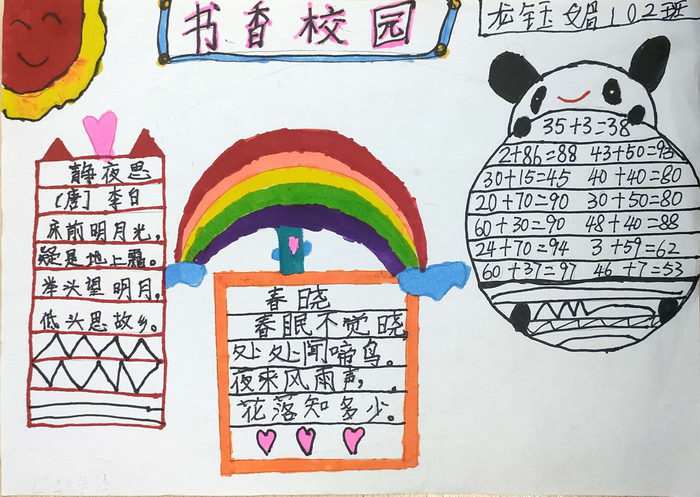 书香校园
龙钰媚102班
静夜思
[唐] 李白
床前明月光,
疑是地上霜。
举头望明月,
低头思故乡。
春晓
春眠不觉晓,
处处闻啼鸟。
夜来风雨声,
花落知多少。
35+3=38
2+86=88 43+50=93
30+15=45 40+40=80
20+70=90 30+50=80
60+30=90 48+40=88
24+70=94 3+59=62
60+37=97 46+7=53